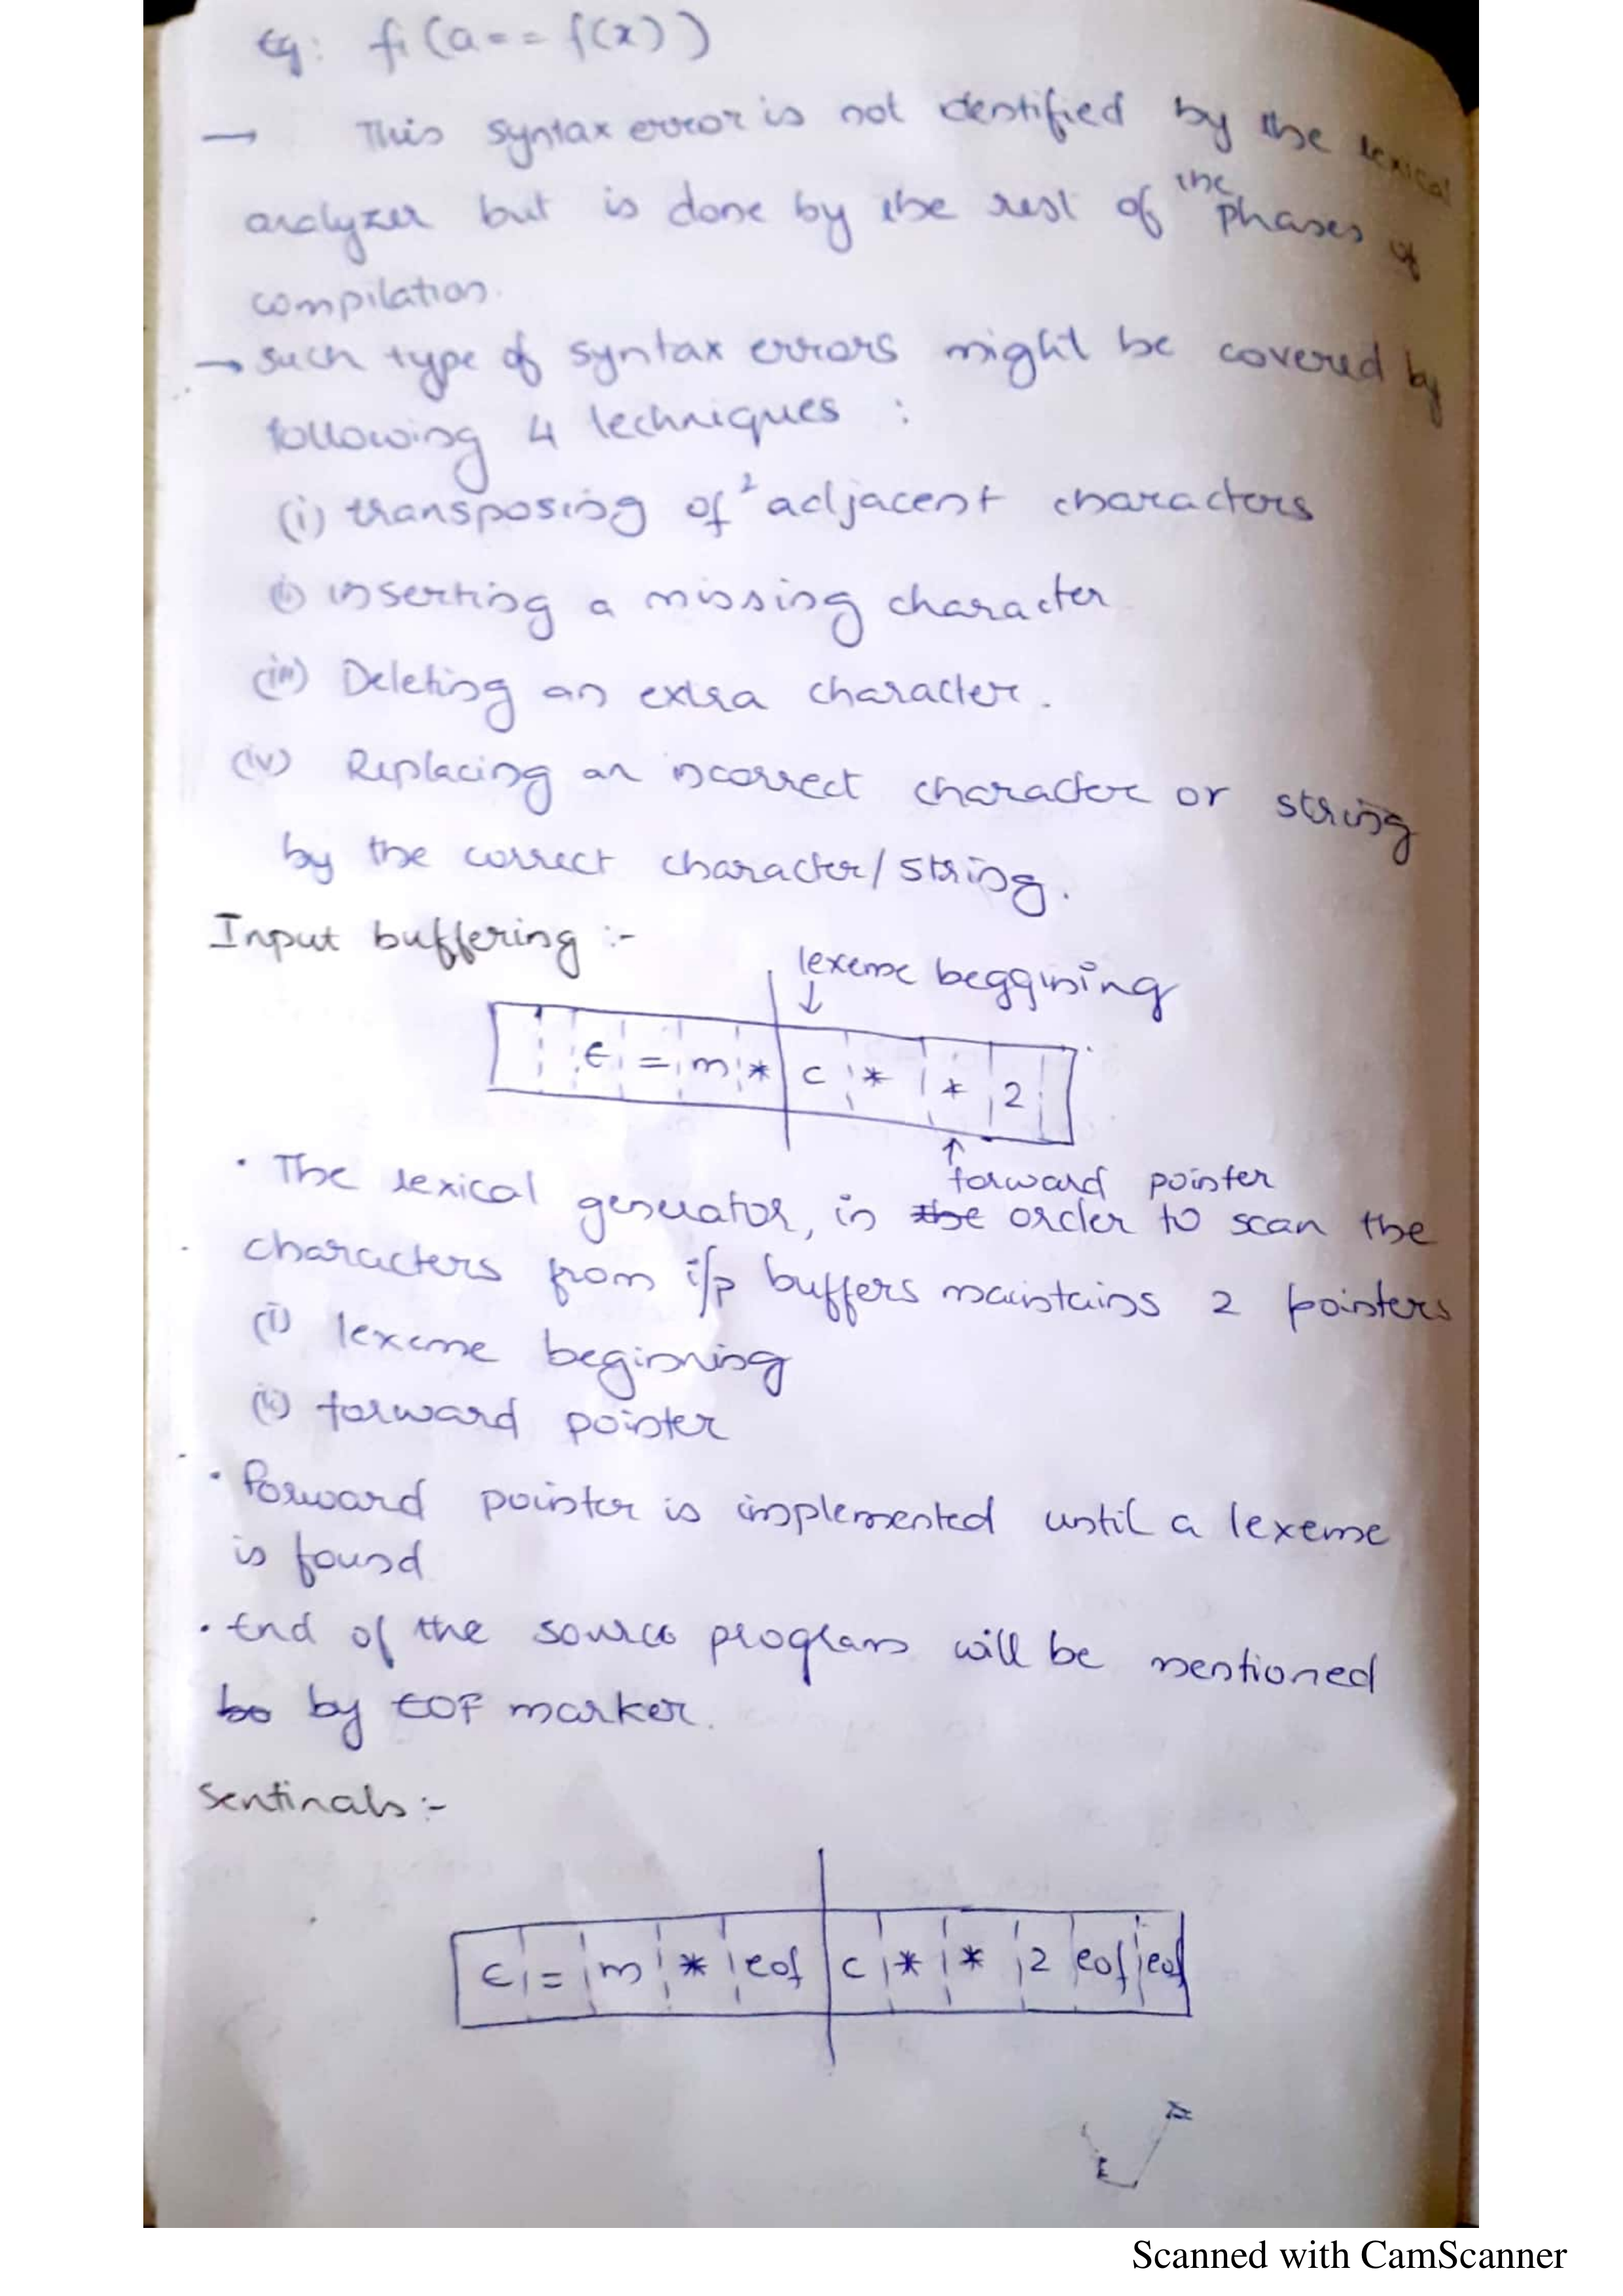 Eg: fi (a == f(x))
→ This syntax error is not identified by the lexical
analyzer but is done by the rest of the phases of
compilation.
→ such type of syntax errors might be covered by
following 4 techniques :
(i) transposing of 2 adjacent characters
(ii) inserting a missing character
(iii) Deleting an extra character.
(iv) Replacing an incorrect character or string
by the correct character/string.
Input buffering :-
lexeme beggining
↓
E = m * c * * 2
↑
forward pointer
• The lexical generator, in the order to scan the
characters from i/p buffers maintains 2 pointers
(i) lexeme beginning
(ii) forward pointer
• forward pointer is implemented until a lexeme
is found
• End of the source program will be mentioned
bo by EOF marker.
Sentinals :-
E = m * eof c * * 2 eof eof
Scanned with CamScanner